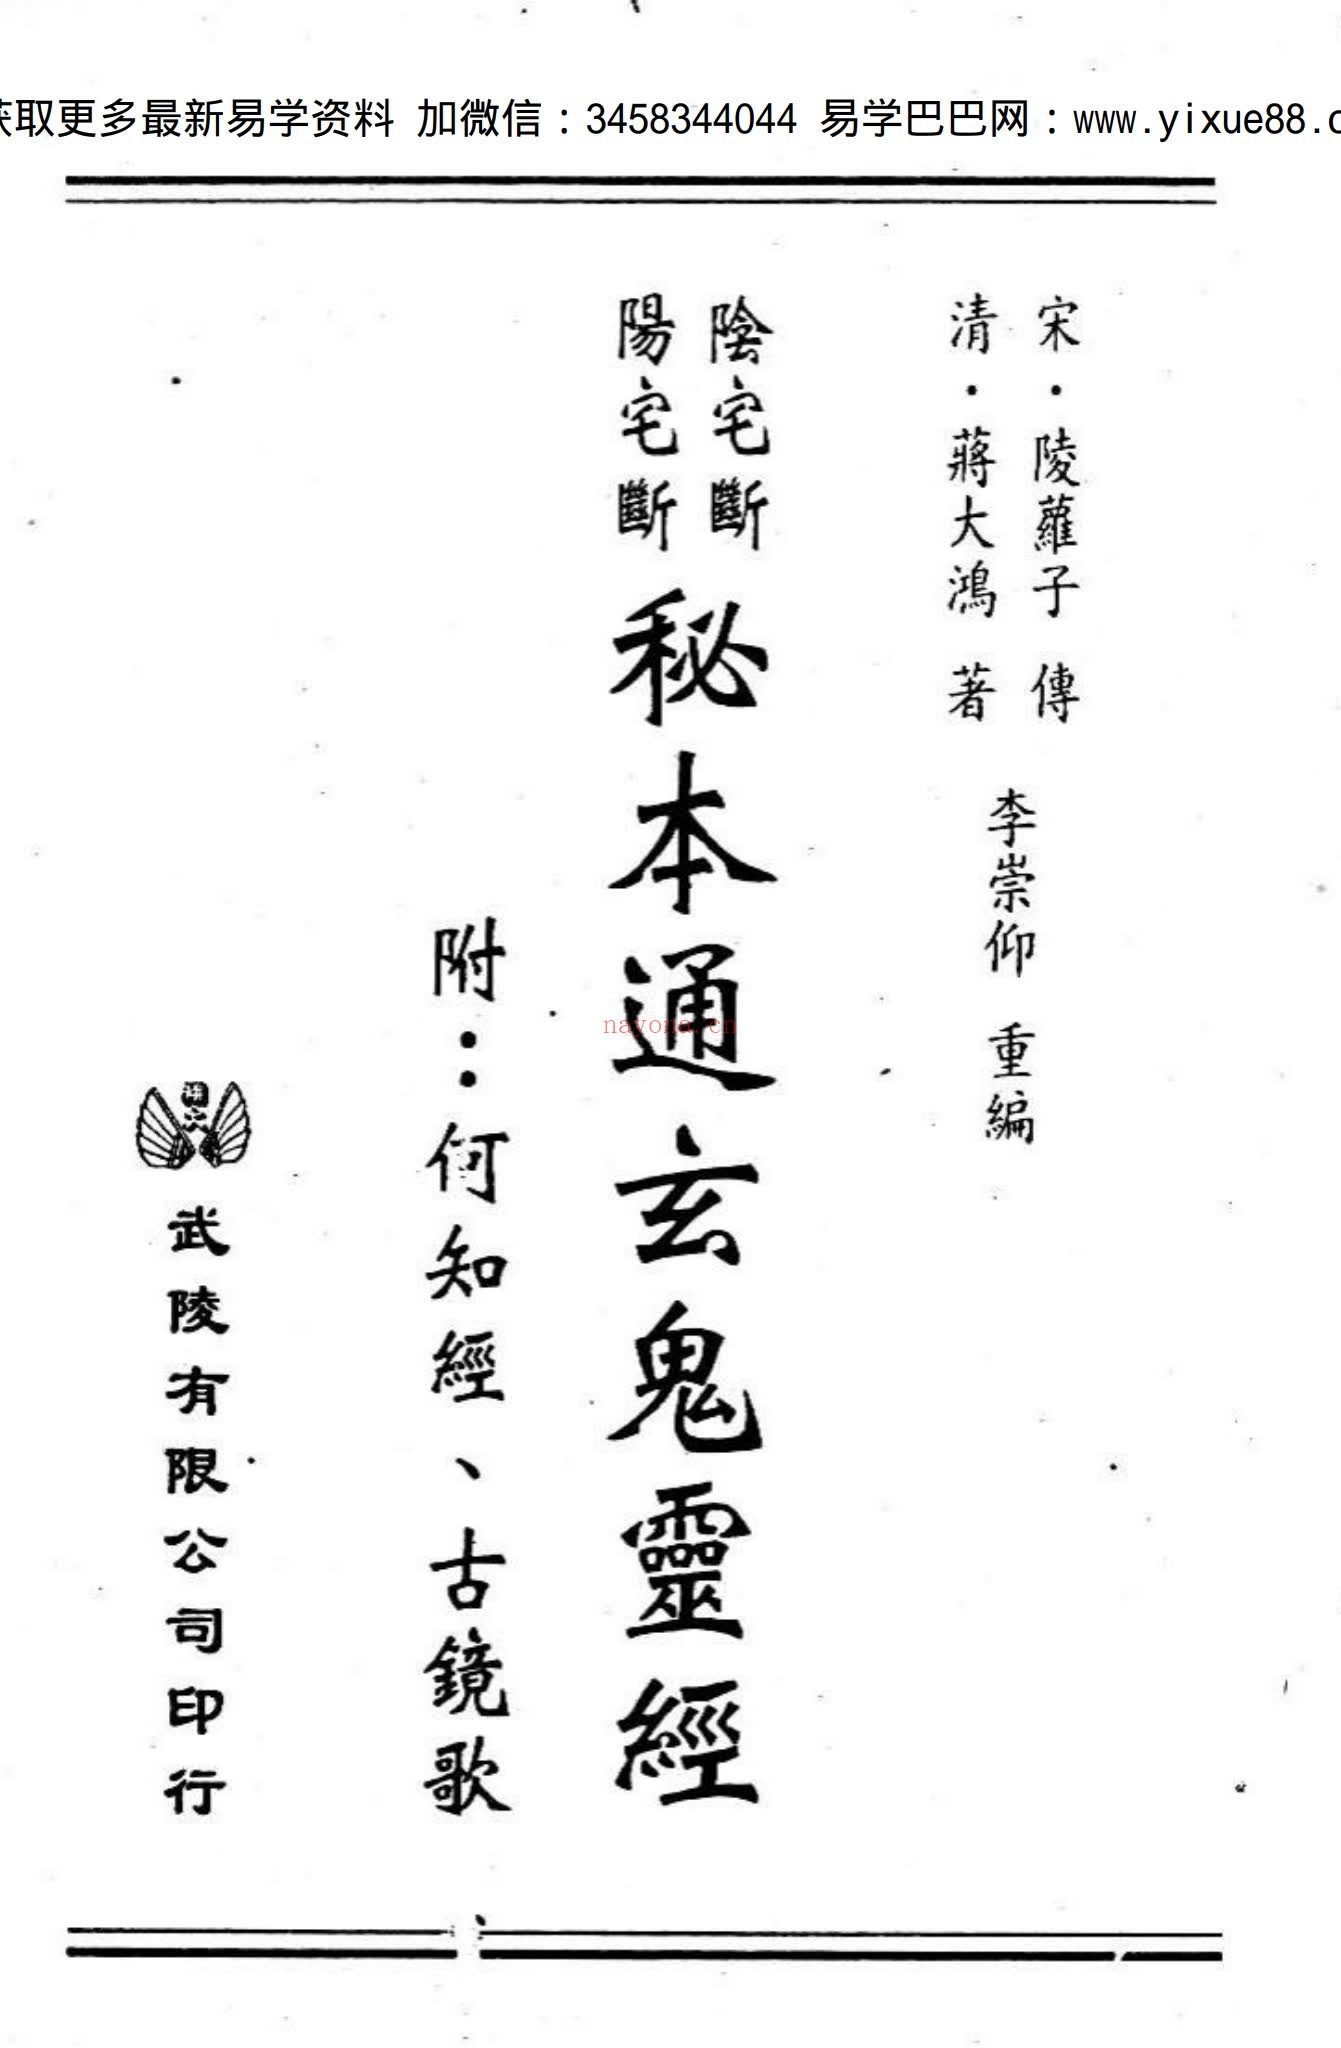 获取更多最新易学资料 加微信:3458344044 易学巴巴网:www.yixue88.c
宋・陵蘿子 傳
清・蔣大鴻 著
李崇仰 重編
陰宅斷
陽宅斷
秘本通玄鬼靈經
附:何知經、古鏡歌
武陵有限公司印行
nayona.cn